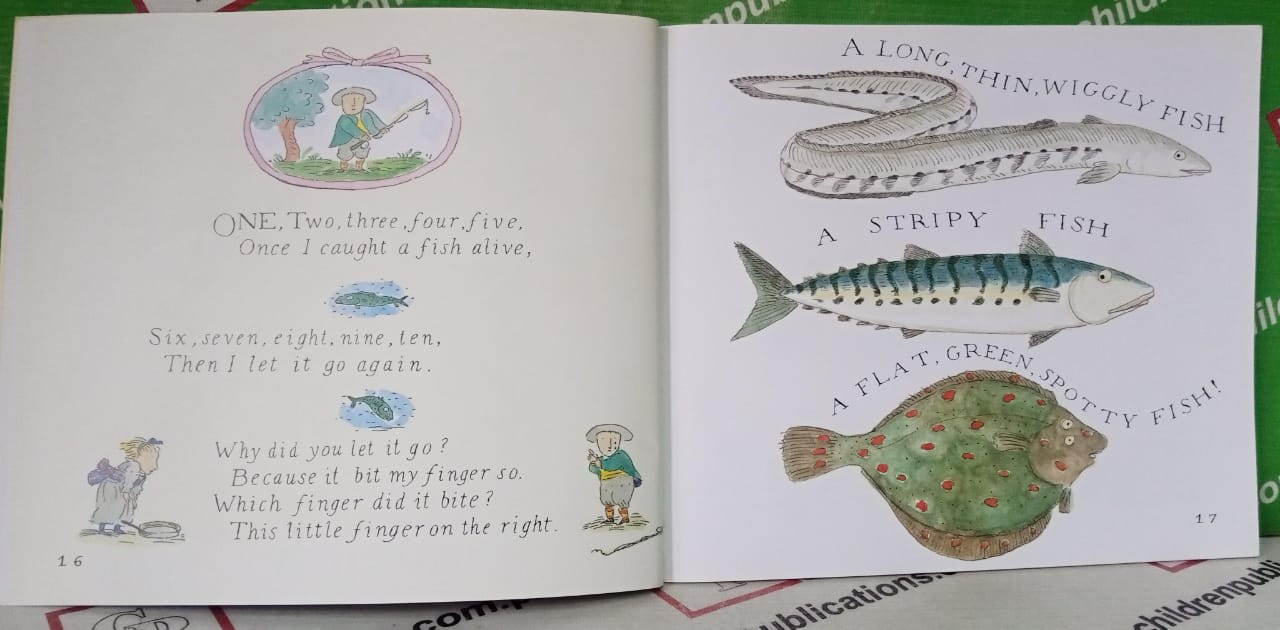 ONE, Two, three, four, five,
Once I caught a fish alive,
Six, seven, eight, nine, ten,
Then I let it go again.
Why did you let it go?
Because it bit my finger so.
Which finger did it bite?
This little finger on the right.
16
A LONG, THIN, WIGGLY FISH
A STRIPY FISH
A FLAT, GREEN, SPOTTY FISH!
17